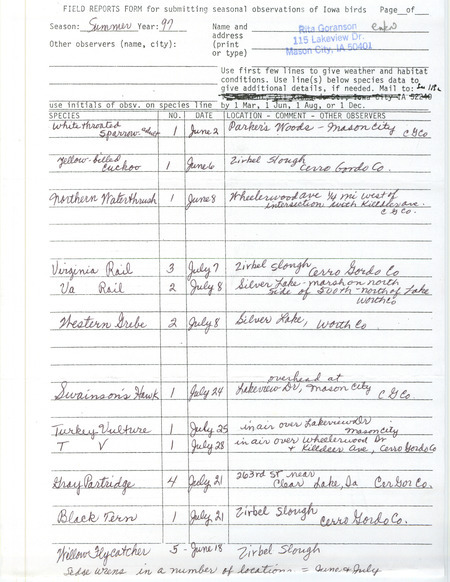 FIELD REPORTS FORM for submitting seasonal observations of Iowa birds Page__of
Season: Summer Year: 97 Name and
address
(print
or type)
Rita Goranson
115 Lakeview Dr.
Mason City, IA 50401
Other observers (name, city):
Use first few lines to give weather and habitat
conditions. Use line(s) below species data to
give additional details, if needed. Mail to:
Iowa City IA 52240
use initials of obsv. on species line by 1 Mar, 1 Jun, 1 Aug, or 1 Dec.
SPECIES NO. DATE LOCATION - COMMENT - OTHER OBSERVERS
White throated
Sparrow 1 June 2 Parker's Woods - Mason City C G Co.
Yellow-billed
cuckoo 1 June 6 Zirbel Slough
Cerro Gordo Co.
Northern Waterthrush 1 June 8 Wheelerwood ave 1/4 mi west of
intersection with Killdeer ave.
C G Co.
Virginia Rail 3 July 7 Zirbel Slough Cerro Gordo Co
Va Rail 2 July 8 Silver Lake - marsh on north
side of 500th - north of Lake
Worth Co
Western Grebe 2 July 8 Silver Lake, Worth Co
overhead at
Swainson's Hawk 1 July 24 Lakeview Dr, Mason City C G Co
Turkey Vulture 1 July 25 in air over Lakeview Dr
Mason City
T V 1 July 28 in air over Wheelerwood Dr
+ Killdeer Ave, Cerro Gordo Co
Gray Partridge 4 July 21 263rd St near
Clear Lake, Ia Cer Gor Co.
Black Tern 1 July 21 Zirbel Slough
Cerro Gordo Co.
Willow Flycatcher 5 - June 18 Zirbel Slough
Sedge wrens in a number of locations = June & July